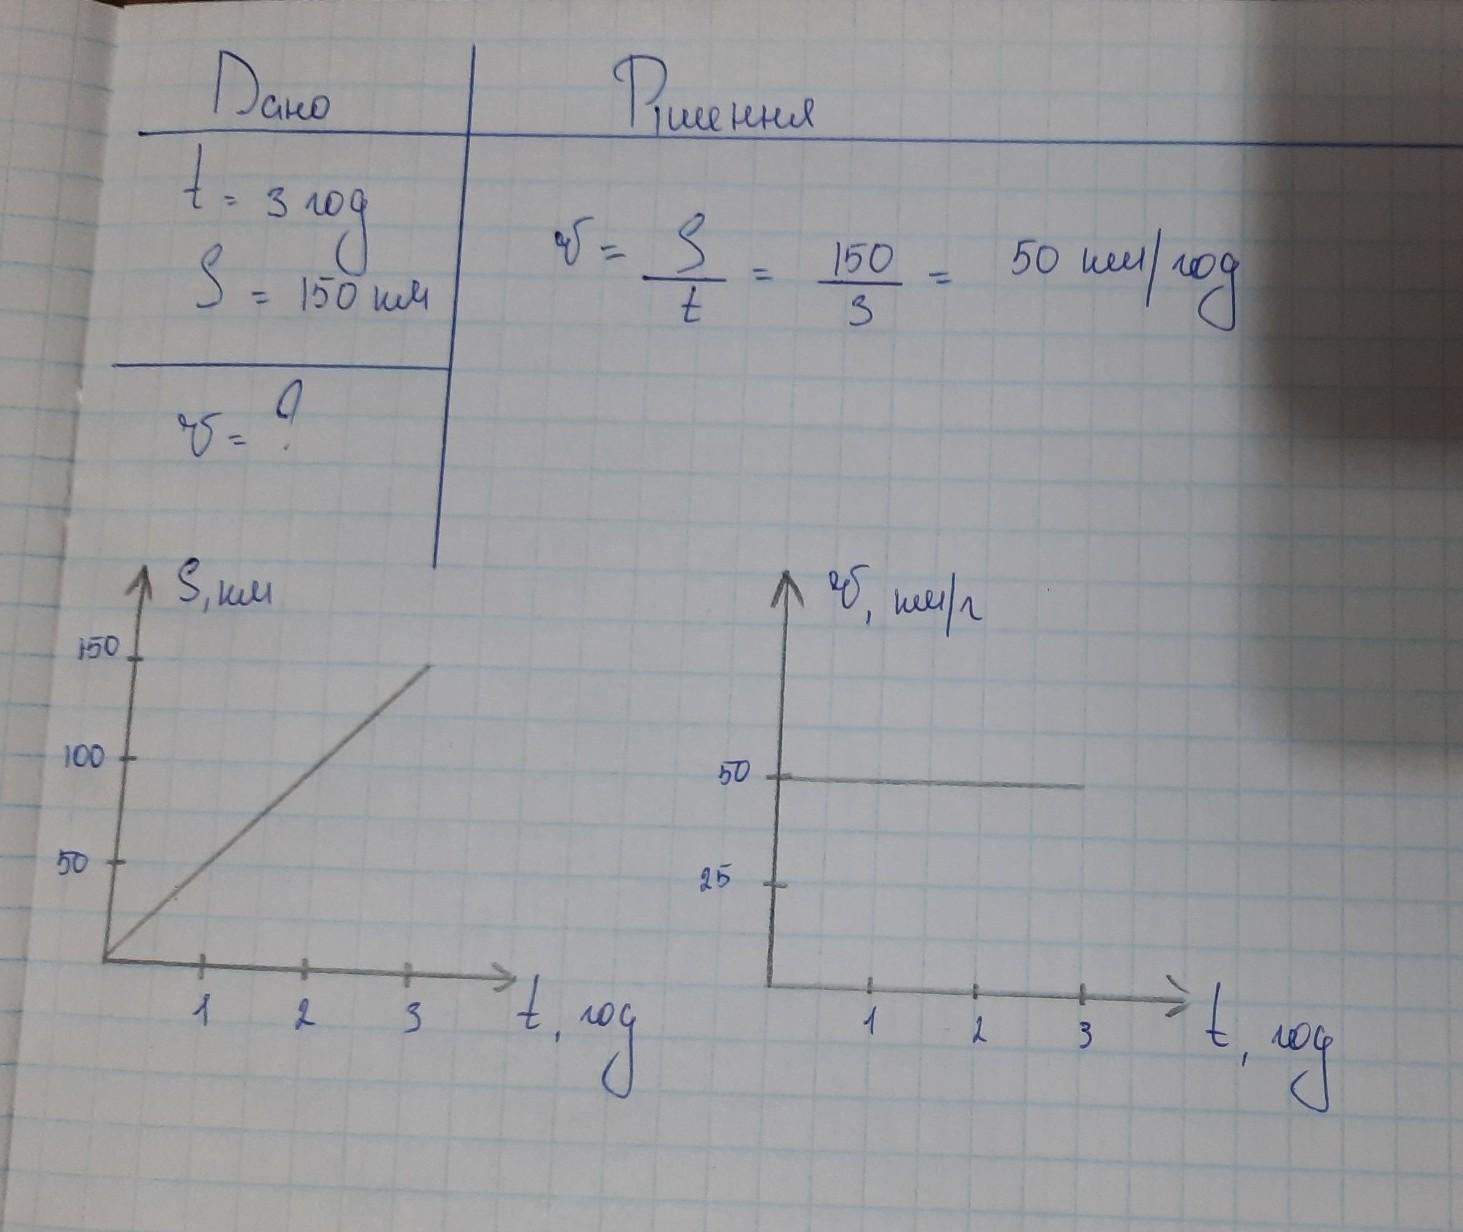 Дано
Рішення
t = 3 год
S = 150 км
v = ?
v = S/t = 150/3 = 50 км/год
S, км
150
100
50
1 2 3 t, год
v, км/г
50
25
1 2 3 t, год